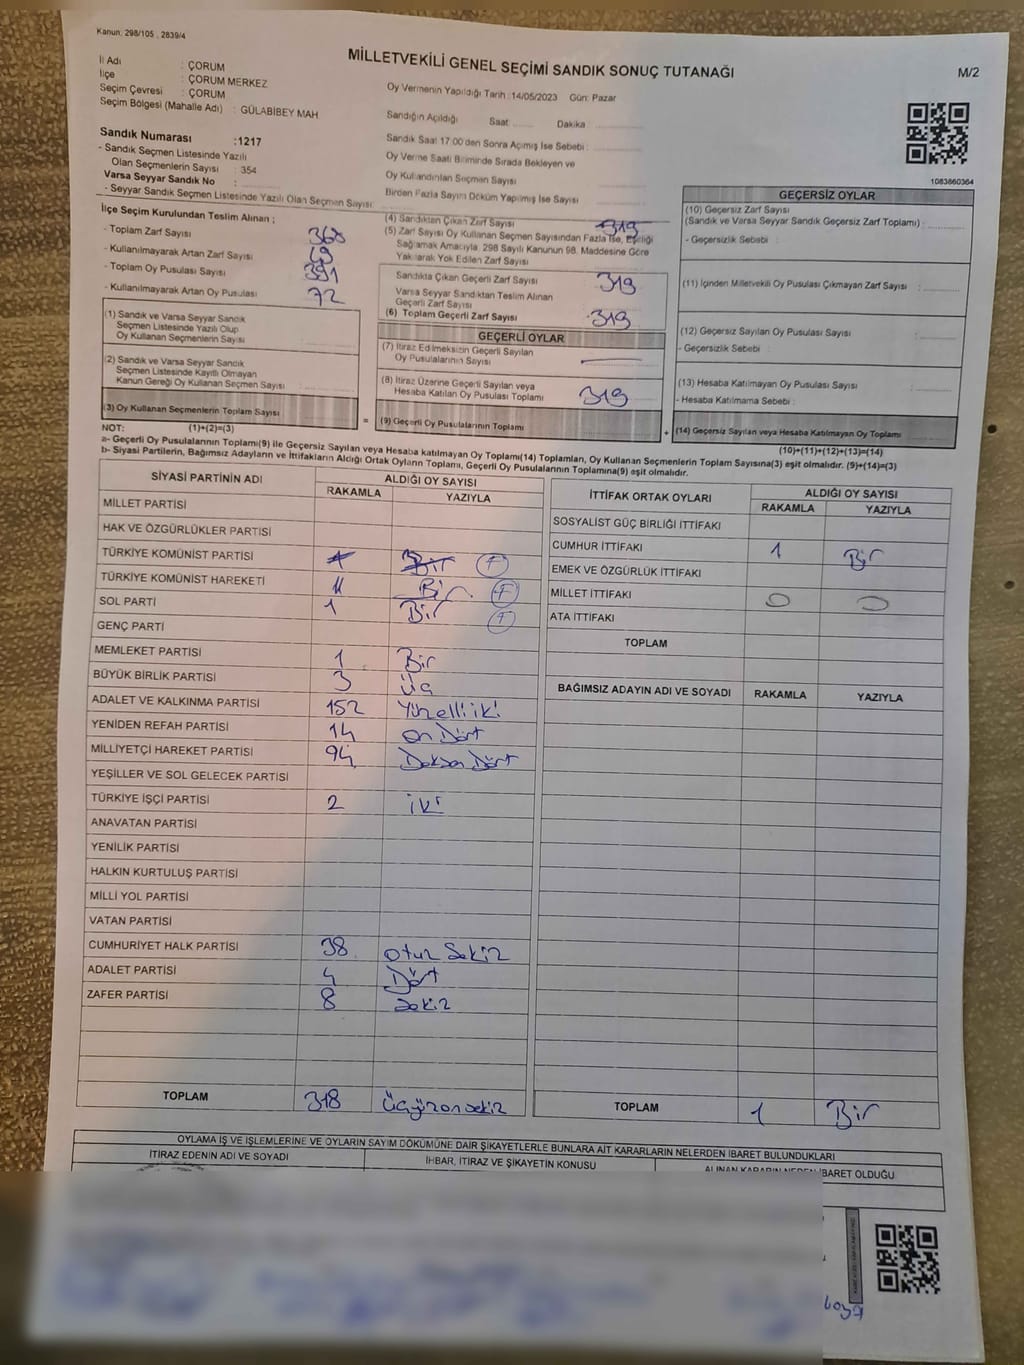 Kanun: 298/105 , 2839/4
MİLLETVEKİLİ GENEL SEÇİMİ SANDIK SONUÇ TUTANAĞI
M/2
İl Adı : ÇORUM
İlçe : ÇORUM MERKEZ
Seçim Çevresi : ÇORUM
Seçim Bölgesi (Mahalle Adı) : GÜLABİBEY MAH
Sandık Numarası :1217
- Sandık Seçmen Listesinde Yazılı
Olan Seçmenlerin Sayısı : 354
Varsa Seyyar Sandık No :
- Seyyar Sandık Seçmen Listesinde Yazılı Olan Seçmen Sayısı:
Oy Vermenin Yapıldığı Tarih :14/05/2023 Gün: Pazar
Sandığın Açıldığı Saat ....... Dakika :
Sandık Saat 17:00'den Sonra Açılmış İse Sebebi :
Oy Verme Saati Bitiminde Sırada Bekleyen ve
Oy Kullandırılan Seçmen Sayısı
Birden Fazla Sayım Döküm Yapılmış İse Sayısı :
1083860364
İlçe Seçim Kurulundan Teslim Alınan ;
- Toplam Zarf Sayısı 368
- Kullanılmayarak Artan Zarf Sayısı 49
- Toplam Oy Pusulası Sayısı 391
- Kullanılmayarak Artan Oy Pusulası 72
(1) Sandık ve Varsa Seyyar Sandık
Seçmen Listesinde Yazılı Olup
Oy Kullanan Seçmenlerin Sayısı :
(2) Sandık ve Varsa Seyyar Sandık
Seçmen Listesinde Kayıtlı Olmayan
Kanun Gereği Oy Kullanan Seçmen Sayısı :
(3) Oy Kullanan Seçmenlerin Toplam Sayısı
(1)+(2)=(3)
(4) Sandıktan Çıkan Zarf Sayısı 319
(5) Zarf Sayısı Oy Kullanan Seçmen Sayısından Fazla İse, Eşitliği
Sağlamak Amacıyla, 298 Sayılı Kanunun 98. Maddesine Göre
Yakılarak Yok Edilen Zarf Sayısı
Sandıkta Çıkan Geçerli Zarf Sayısı 319
Varsa Seyyar Sandıktan Teslim Alınan
Geçerli Zarf Sayısı
(6) Toplam Geçerli Zarf Sayısı 319
GEÇERLİ OYLAR
(7) İtiraz Edilmeksizin Geçerli Sayılan
Oy Pusulalarının Sayısı
(8) İtiraz Üzerine Geçerli Sayılan veya
Hesaba Katılan Oy Pusulası Toplamı 319
= (9) Geçerli Oy Pusulalarının Toplamı
GEÇERSİZ OYLAR
(10) Geçersiz Zarf Sayısı
(Sandık ve Varsa Seyyar Sandık Geçersiz Zarf Toplamı) :
- Geçersizlik Sebebi :
(11) İçinden Milletvekili Oy Pusulası Çıkmayan Zarf Sayısı :
(12) Geçersiz Sayılan Oy Pusulası Sayısı :
- Geçersizlik Sebebi :
(13) Hesaba Katılmayan Oy Pusulası Sayısı :
- Hesaba Katılmama Sebebi :
+ (14) Geçersiz Sayılan veya Hesaba Katılmayan Oy Pusulası Toplamı
(10)+(11)+(12)+(13)=(14)
NOT:
a- Geçerli Oy Pusulalarının Toplamı(9) ile Geçersiz Sayılan veya Hesaba katılmayan Oy Toplamı(14) Toplamları, Oy Kullanan Seçmenlerin Toplam Sayısına(3) eşit olmalıdır. (9)+(14)=(3)
b- Siyasi Partilerin, Bağımsız Adayların ve İttifakların Aldığı Ortak Oyların Toplamı, Geçerli Oy Pusulalarının Toplamına(9) eşit olmalıdır.
SİYASİ PARTİNİN ADI ALDIĞI OY SAYISI
RAKAMLA YAZIYLA
MİLLET PARTİSİ
HAK VE ÖZGÜRLÜKLER PARTİSİ
TÜRKİYE KOMÜNİST PARTİSİ 1 Bir
TÜRKİYE KOMÜNİST HAREKETİ 1 Bir
SOL PARTİ 1 Bir
GENÇ PARTİ
MEMLEKET PARTİSİ 1 Bir
BÜYÜK BİRLİK PARTİSİ 3 Üç
ADALET VE KALKINMA PARTİSİ 152 Yüzelli iki
YENİDEN REFAH PARTİSİ 14 on Dört
MİLLİYETÇİ HAREKET PARTİSİ 94 Doksan Dört
YEŞİLLER VE SOL GELECEK PARTİSİ
TÜRKİYE İŞÇİ PARTİSİ 2 iki
ANAVATAN PARTİSİ
YENİLİK PARTİSİ
HALKIN KURTULUŞ PARTİSİ
MİLLİ YOL PARTİSİ
VATAN PARTİSİ
CUMHURİYET HALK PARTİSİ 38 otuz Sekiz
ADALET PARTİSİ 4 Dört
ZAFER PARTİSİ 8 Sekiz
TOPLAM 318 Üçyüzonsekiz
İTTİFAK ORTAK OYLARI ALDIĞI OY SAYISI
RAKAMLA YAZIYLA
SOSYALİST GÜÇ BİRLİĞİ İTTİFAKI
CUMHUR İTTİFAKI 1 Bir
EMEK VE ÖZGÜRLÜK İTTİFAKI
MİLLET İTTİFAKI 0 0
ATA İTTİFAKI
TOPLAM
BAĞIMSIZ ADAYIN ADI VE SOYADI RAKAMLA YAZIYLA
TOPLAM 1 Bir
OYLAMA İŞ VE İŞLEMLERİNE VE OYLARIN SAYIM DÖKÜMÜNE DAİR ŞİKAYETLERLE BUNLARA AİT KARARLARIN NELERDEN İBARET BULUNDUKLARI
İTİRAZ EDENİN ADI VE SOYADI İHBAR, İTİRAZ VE ŞİKAYETİN KONUSU ALINAN KARARIN NEDEN İBARET OLDUĞU